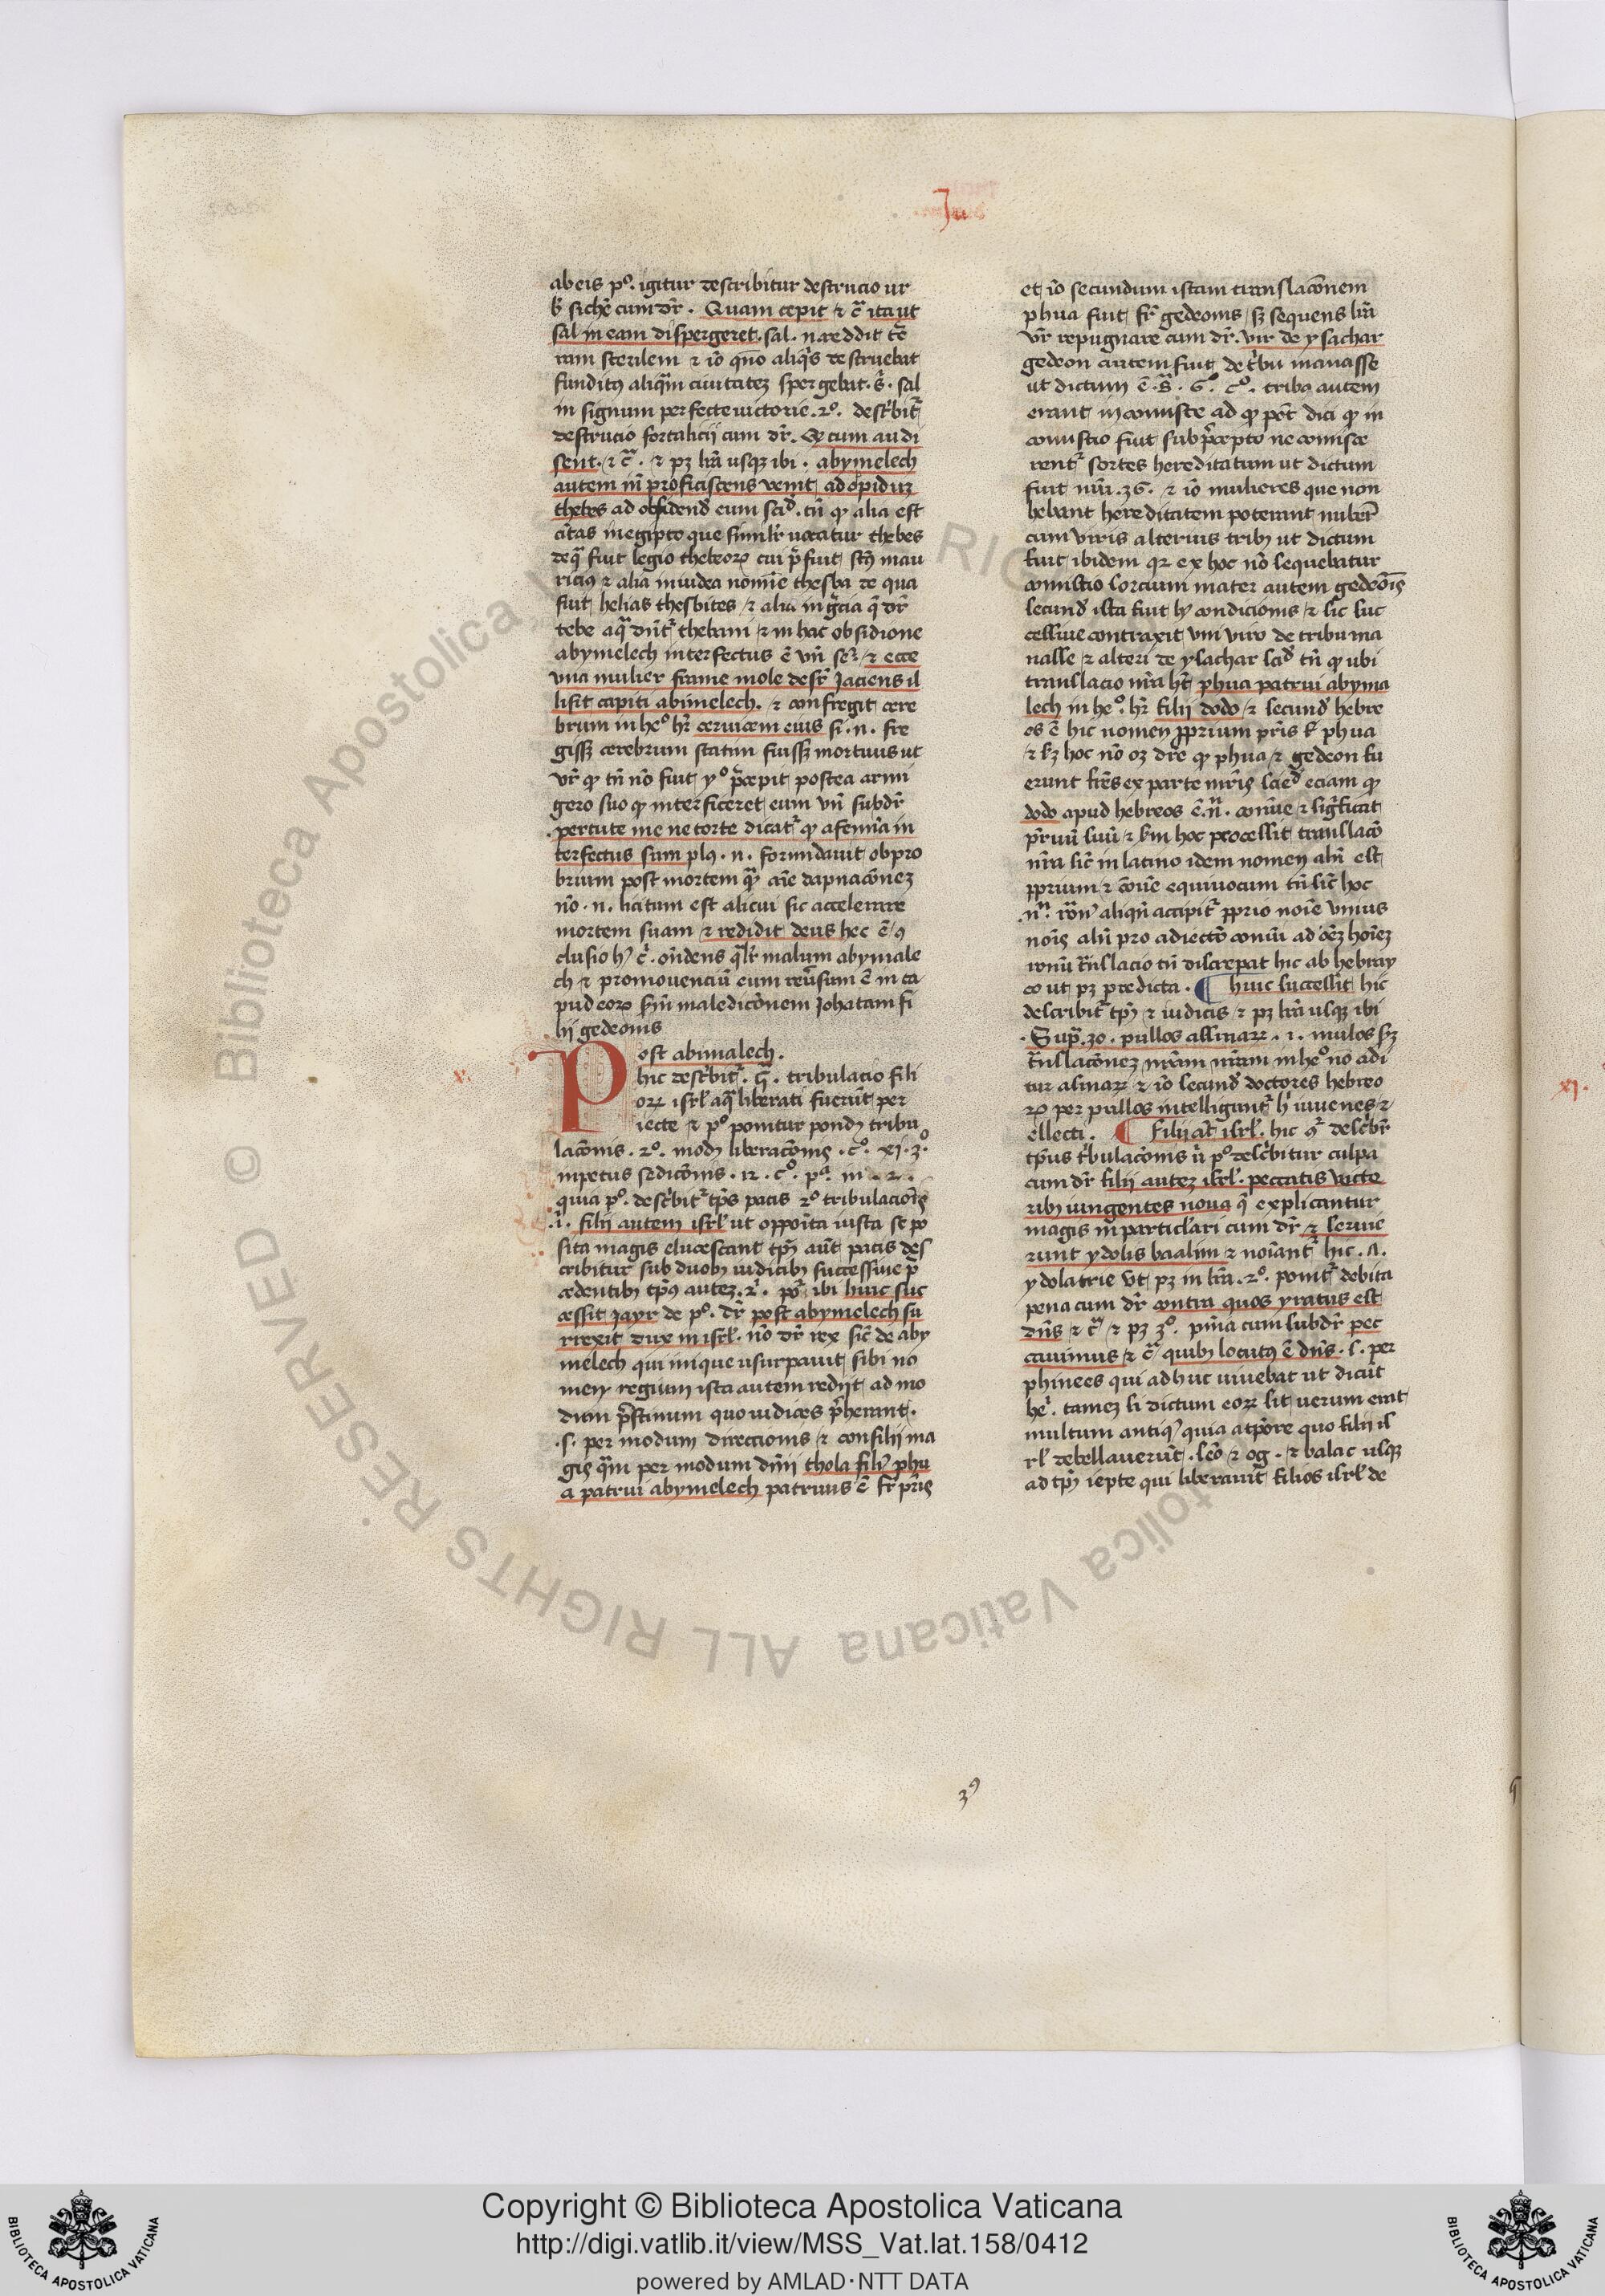 Ju
ab eis pº. igitur describitur destrucio ur
b̾ sichē cum dr̄. Quam cepit ⁊ cͣ ita ut
sal in eam dispergeret. sal. n. reddit t̄r
ram sterilem ⁊ iō qn̄o aliqͥs destruebat
funditꝰ aliqͣm ciuitateꝫ spergebat. s̾. sal
in signum perfecte uictorie. 2º. desc̾bitᷣ
destrucio fortalicii cum dr̄. Q cum audi
sent. ⁊ cͣ. ⁊ pꝫ lr̄a usqꝫ ibi. abymelech
autem in̄ proficiscens venit ad opiduꝫ
thebes ad obsidend̾ eum scd̾. tn̄ ꝙ alia est
cīuitas in egipto que simil'r uocatur thebes
de qͣ fuit legio thebeoꝝ cui p̄fuit sc̄s mau
ricius ⁊ alia in iudea nomīe thesba de qua
fuit helias thesbites ⁊ alia in g̾cia q̄ dr̄
tebe a qͣ dn̄tᷣ thebani ⁊ in hac obsidione
abymelech interfectus ē vn̄ seᷣ. ⁊ ecce
vna mulier frame mole desr̄ Jaciens il
lisit capiti abimelech. ⁊ confregit cere
brum in heº hr̄ ceruicem eius si. n. fre
gissꝫ cerebrum statim fuissꝫ mortuus ut
vr̄ ꝙ tn̄ nō fuit yº p̄cepit postea armi
gero suo ꝙ interficeret eum vn̄ subdr̄
percute me ne forte dicatᷣ ꝙ a femīa in
terfectus sum plꝰ. n. formidauit obpro
brium post mortem qͣꝫ aīe dapnacōneꝫ
nō. n. licitum est alicui sic accelerare
mortem suam ⁊ redidit deus hec ē ꝯ
clusio hꝰ c̾. on̄dens qͣl'r malum abymale
ch ⁊ promouenciū eum reūsum ē in ca
pud eoꝝ scd̾m maledicōnem Johatam fi
lij gedeonis
Post abimalech.
hic desc̾bitᷣ. qͣ. tribulacio fili
oꝝ isrl' a qͣ liberati fuerūt per
iecte ⁊ pº ponitur pondꝰ tribu
lacōnis. 2º. modꝰ liberacōnis. cº. xj. 3º
inpetus sedicōnis. 12. cº. pª. in. 2.
quia pº. desc̾bitᷣ tp̄s pacis 2º tribulaciōis
.i. filii autem isrl' ut oppoīta iusta se po
sita magis elucescant tp̄s aūt pacis des
cribitur sub duobꝰ iudicibꝰ successiue p̄
cedentibꝰ tp̄s auteꝫ. 2ͥ. poᷣ ibi huic suc
cessit Jayr de pº. dr̄ post abymelech su
rrexit dux in isrl'. nō dr̄ rex sic̄ de aby
melech qui inique usurpauit sibi no
men regium ista autem redijt ad mo
dum p̄stinum quo iudices p̄herant.
.s. per modum direccionis ⁊ consilii ma
gis qͣꝫ per modum dn̄ij thola filꝰ phu
a patrui abymelech patruus ē fr̄ pr̄is
et iō secundum istam translacōnem
phua fuit fr̄ gedeonis sꝫ sequens lr̄a
vr̄ repugnare cum dr̄. vir de ysachar
gedeon autem fuit de t̾bu manasse
ut dictum ē. s̾. 6º. cº. tribꝰ autem
erant in comiste ad ꝙ pōt dici ꝙ in
comistio fuit sub p̄cepto ne comisce
rentᷣ sortes hereditatum ut dictum
fuit nūi. 36. ⁊ iō mulieres que non
hebant hereditatem poterant nuber̄
cum viris alterius tribꝰ ut dictum
fuit ibidem qꝛ ex hoc nō sequebatur
comistio sorcium mater autem gedeōis
secund̾ ista fuit hꝰ condicionis ⁊ sic suc
cessiue contraxit vni viro de tribu ma
nasse ⁊ alteri de ysachar scd̾ tn̄ ꝙ ubi
translacio nr̄a ht̄ phua patrui abyma
lech in heº. hr̄ filii dodo ⁊ secund̾ hebre
os ē hic nomen ꝓprium pr̄is ł phua
⁊ scd̾ hoc nō oꝫ dr̄e ꝙ phua ⁊ gedeon fu
erunt fr̄es ex parte mr̄is sciēd̾ eciam ꝙ
dodo apud hebreos ē. nͣ. comūe ⁊ signīficat
pr̄uū suū ⁊ scd̾m hoc processit translacō
nr̄a sic̄ in latino idem nomen ali̾ est
ꝓprium ⁊ cōmūe equiuocum tn̄ sic̄ hoc
nͣ. roīnꝰ aliqn̄ accipitᷣ ꝓprio noīe vnius
noīs ali̾ pro adiectō comūi ad oēꝫ hoīeꝫ
romū tn̄slacio tn̄ discrepat hic ab hebray
co ut pꝫ predicta. ¶ huic successit hic
describitᷣ tp̄s ⁊ iudicis ⁊ pꝫ lr̄a usqꝫ ibi
Sup̄. 30. pullos assinaꝝ. i. mulos sꝫ
tn̄slacōneꝫ nr̄am nr̄am in heº nō adi
tur asinaꝝ ⁊ iō secund̾ doctores hebreo
ꝝ per pullos intelliguntᷣ hͥ iuuenes ⁊
ellecti. ¶ Filii āt isrl'. hic ꝯᷣ desc̾br̄
tp̄us t̾bulacōnis ⁊ pº desc̾bitur culpa
cum dr̄ filii auteꝫ isrl'. peccatis vete
ribꝰ iungentes noua q̄ explicantur
magis in particl'ari cum dr̄ ⁊ seruie
runt ydolis baalim ⁊ noīantᷣ hic. n.
ydolatrie vt pꝫ in lr̄a. 2º. ponitᷣ debita
pena cum dr̄ contra quos yratus est
dn̄s ⁊ cͣ ⁊ pꝫ 3º. pn̄ia cum subdr̄ pec
cauimus ⁊ cͣ quibꝰ locutꝰ ē dn̄s. s. per
phinees qui adhuc uiuebat ut dicūt
heͥ. tameꝫ si dictum eoꝝ sit uerum erat
multum antiqꝰ quia a tp̄ore quo filii is
rl' debellauerūt. seō ⁊ og. ⁊ balac usqꝫ
ad tp̄s iepte qui liberauit filios isrl' de
x.
xj.
3ꝰ
Copyright © Biblioteca Apostolica Vaticana
http://digi.vatlib.it/view/MSS_Vat.lat.158/0412
powered by AMLAD·NTT DATA
BIBLIOTECA APOSTOLICA VATICANA
BIBLIOTECA APOSTOLICA VATICANA
© Biblioteca Apostolica Vaticana ALL RIGHTS RESERVED